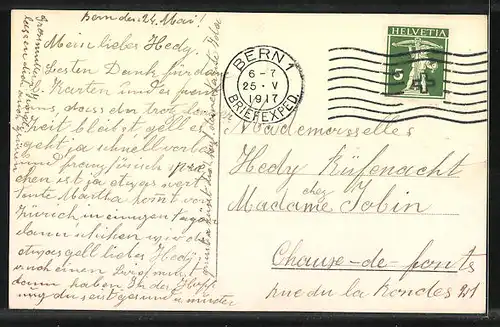 Bern den 24. Mai!
Mein liebes Hedy.
Besten Dank für das
Karten und es freut
uns dass du
Zeit bleibst gell es
geht ja schnell vorbei
und französisch spre
chen ist ja etwas wert
tante Martha kommt von
Zürich in einigen tagen
dann schiken wir dir
etwas gell liebes Hedy
noch einen Brief mit
dann haben. In der Hoff
nung du seist gesund u. munter
Grossmutter
lassen dich
BERN 1
6-7
25. V
1917
BRIEFEXPED.
HELVETIA
5
Mademoiselles
Hedy Rüfenacht
chez
Madame Jobin
Chause-de-fonts
rue du la Rondes 21